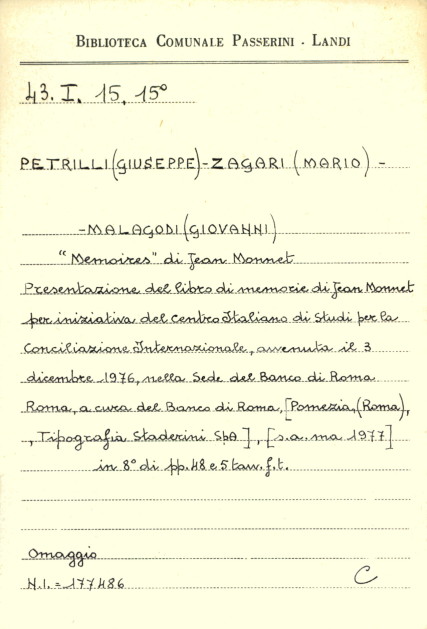 BIBLIOTECA COMUNALE PASSERINI - LANDI
43. I. 15. 15°
PETRILLI (GIUSEPPE) - ZAGARI (MARIO) -
- MALAGODI (GIOVANNI)
"Memoires" di Jean Monnet
Presentazione del libro di memorie di Jean Monnet
per iniziativa del Centro Italiano di Studi per la
Conciliazione Internazionale, avvenuta il 3
dicembre 1976, nella Sede del Banco di Roma
Roma, a cura del Banco di Roma, [Pomezia, (Roma),
, Tipografia Staderini SpA], [s.a. ma 1977]
in 8° di pp. 48 e 5 tavv. f.t.
Omaggio
N.I. = 177486
C